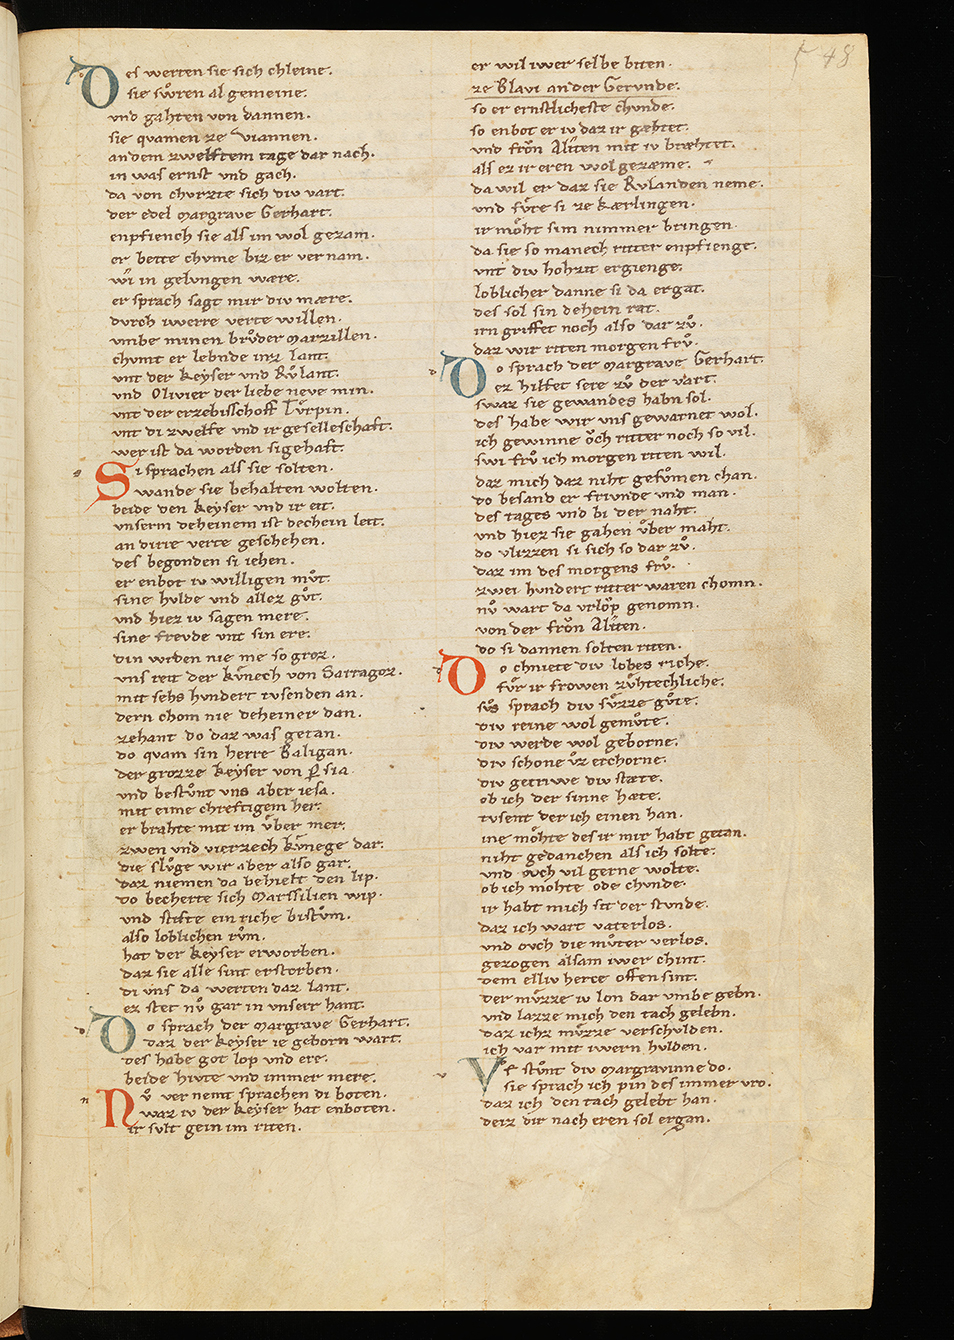 48
Des werten sie sich chleine.
sie swͦren al gemeine.
vnd gahten von dannen.
sie quamen ze Viannen.
an dem zwelftem tage dar nach.
in was ernst vnd gach.
da von chvrzte sich div vart.
der edel Margrave Gerhart.
enpfiench sie als im wol gezam.
er beite chvme biz er vernam.
wi in gelvngen wære.
er sprach sagt mir div mære.
dvrch iwerre verte willen.
vmbe minen brvͦder Marzillen.
chvmt er lebnde inz lant.
vnt der keyser vnd Rvͦlant.
vnd Olivier der liebe neve min.
vnt der erzebisschoff Tvrpin.
vnt di zwelfe vnd ir geselleschaft.
wer ist da worden sigehaft.
Si sprachen als sie solten.
wande sie behalten wolten.
beide den keyser vnd ir eit.
vnserm deheinem ist dechein leit.
an dirre verte geschehen.
des begonden si iehen.
er enbot iv willigen mvͦt.
sine hvlde vnd allez gvͦt.
vnd hiez iv sagen mere.
sine frevde vnt sin ere.
din wrden nie me so groz.
vns reit der kvnech von Sarragoz.
mit sehs hvndert tvsenden an.
dern chom nie deheiner dan.
zehant do daz was getan.
do quam sin herre Baligan.
der grozze keyser von ꝑsia.
vnd bestvͦnt vns aber iesa.
mit eime chreftigem her.
er brahte mit im vͦber mer.
zwen vnd vierzech kvnege dar.
die slvͦge wir aber also gar.
daz niemen da behielt den lip.
do becherte sich Marssilien wip.
vnd stifte ein riche bistvͦm.
also loblichen rvͦm.
hat der keyser erworben.
daz sie alle sint erstorben.
di vns da werten daz lant.
ez stet nvͦ gar in vnserr hant.
Do sprach der Margrave Gerhart.
daz der keyser ie geborn wart.
des habe got lop vnd ere.
beide hivte vnd immer mere.
Nvͦ vernemt sprachen di boten.
waz iv der keyser hat enboten.
ir svlt gein im riten.
er wil iwer selbe biten.
ze Blavi an der Gervnde.
so er ernstlicheste chvnde.
so enbot er iv daz ir gæhtet.
vnd frovn Aliten mit iv bræhtet.
als ez ir eren wol gezæme.
da wil er daz sie Rvlanden neme.
vnd fvͦre si ze Kærlingen.
ir moht sim nimmer bringen.
da sie so manech ritter enpfienge.
vnt div hohzit ergienge.
loblicher danne si da ergat.
des sol sin dehein rat.
irn griffet noch also dar zvͦ.
daz wir riten morgen frvͦ.
Do sprach der Margrave Gerhart.
ez hilfet sere zvͦ der vart.
swaz sie gewandes habn sol.
des habe wir vns gewarnet wol.
ich gewinne ovch ritter noch so vil.
swi frvͦ ich morgen riten wil.
daz mich daz niht gesvͦmen chan.
do besand er frivnde vnd man.
des tages vnd bi der naht.
vnd hiez sie gahen vͦber maht.
do vlizzen si sich so dar zvͦ.
daz im des morgens frvͦ.
zwei hvndert ritter waren chomn.
nvͦ wart da vrlovp genomn.
von der frovn Aliten.
do si dannen solten riten.
Do chniete div lobes riche.
fvͦr ir frowen zvͦhtechliche.
svͦs sprach div svͦzze gvͦte.
div reine wol gemvͦte.
div werde wol geborne.
div schone vͦz erchorne.
div getriwe div stæte.
ob ich der sinne hæte.
tvsent der ich einen han.
ine mohte des ir mir habt getan.
niht gedanchen als ich solte.
vnd ovch vil gerne wolte.
ob ich mohte ode chvnde.
ir habt mich sit der stvnde.
daz ich wart vaterlos.
vnd ovch die mvͦter verlos.
gezogen alsam iwer chint.
dem elliv herce offen sint.
der mvͦzze iv lon dar vmbe gebn.
vnd lazze mich den tach gelebn.
daz ichz mvͦzze verschvlden.
ich var mit iwern hvlden.
Vf stvͦnt div Margravinne do.
sie sprach ich pin des immer vro.
daz ich den tach gelebt han.
deiz dir nach eren sol ergan.